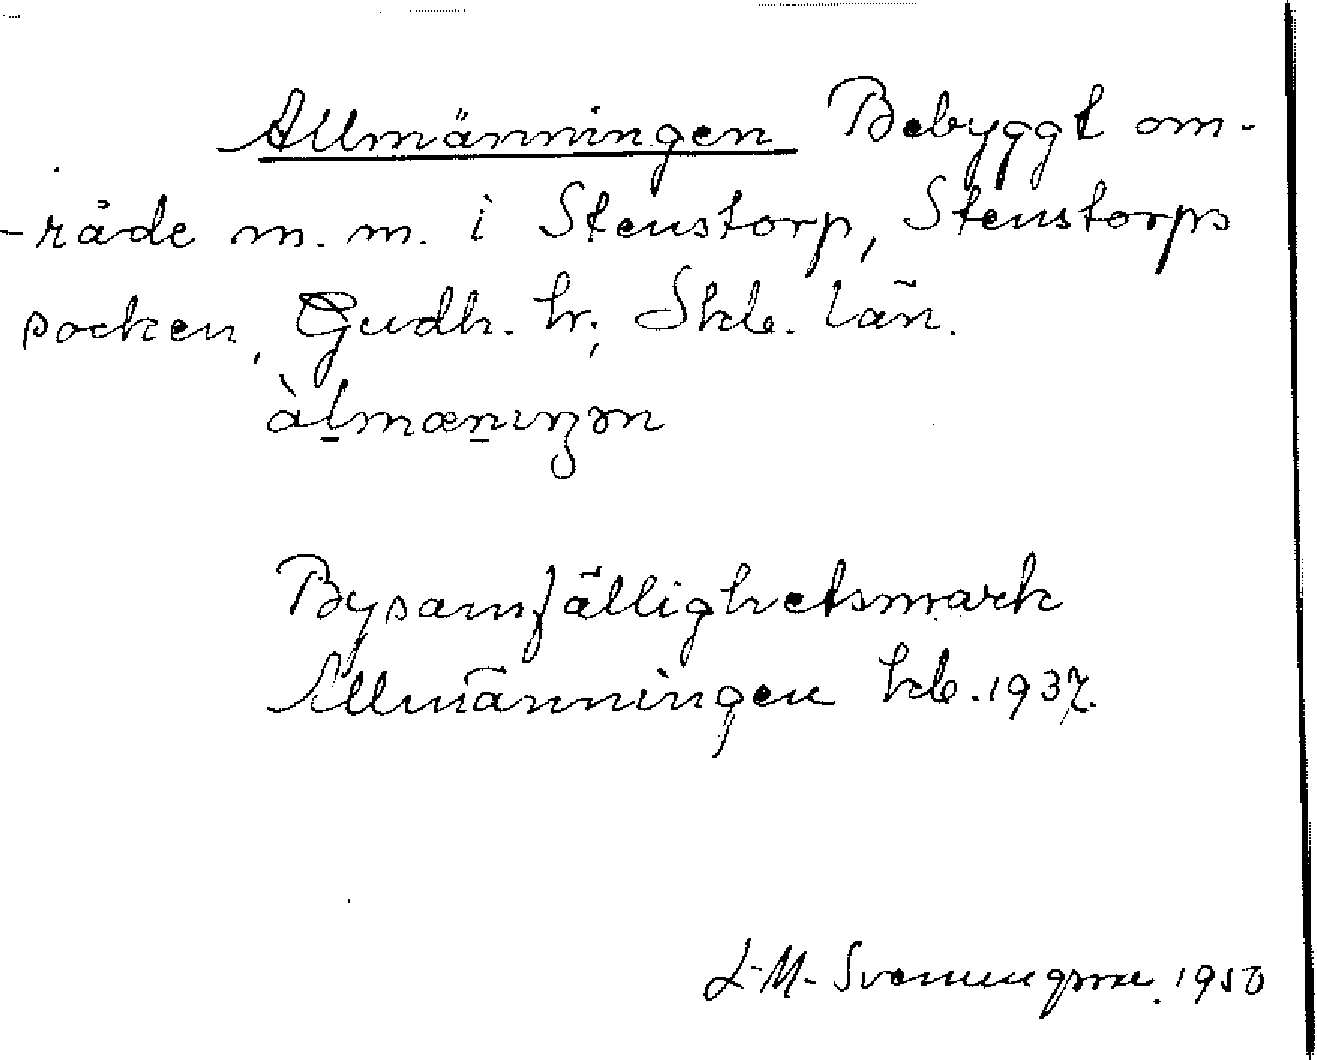 Allmänningen Bebyggt om-
-råde m.m. i Stenstorp, Stenstorps
socken, Gudh. hr; Skb. län.
àl̲mæn̲ıŋən
Bysamfällighetsmark
Allmänningen hkb. 1937.
L-M- Svenungsson. 1950